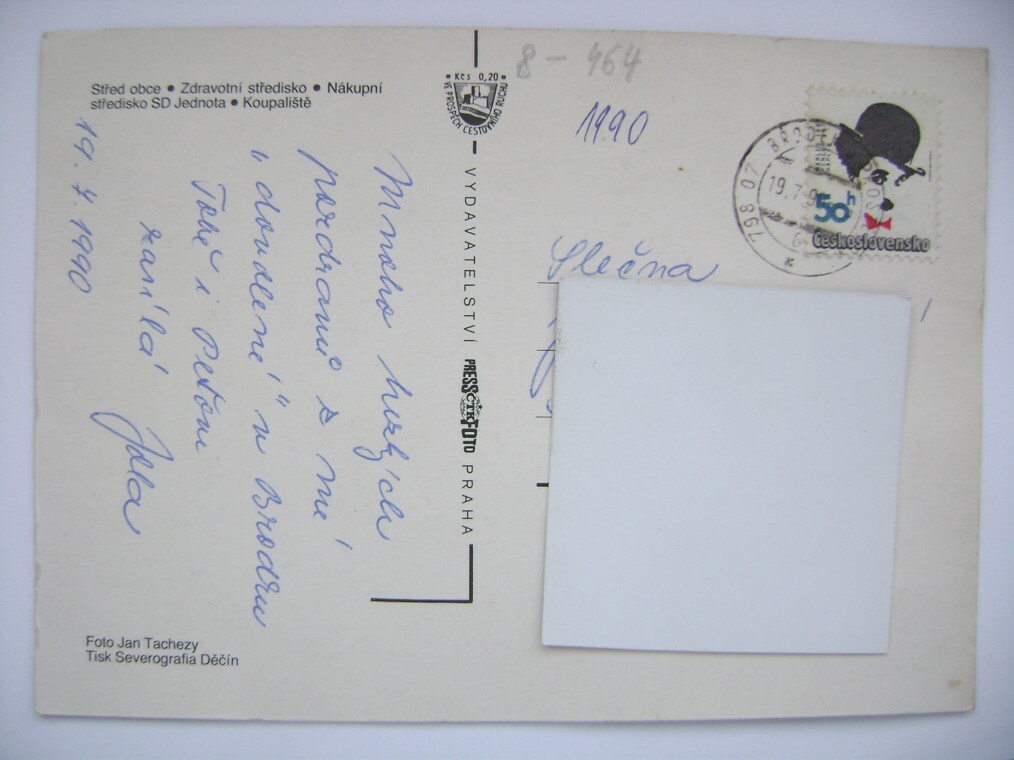 Střed obce • Zdravotní středisko • Nákupní
středisko SD Jednota • Koupaliště
Kčs 0,20
VE PROSPĚCH CESTOVNÍHO RUCHU
8 – 464
1990
798 07 BRODEK
19.7.9
50h
Československo
Slečna
VYDAVATELSTVÍ PRESSFOTO PRAHA
ČTK
Mnoho hezkých
pozdravů z mé
„dovolené" v Brodku
Tobě i Peťovi
zasílá
19. 7. 1990
Foto Jan Tachezy
Tisk Severografia Děčín